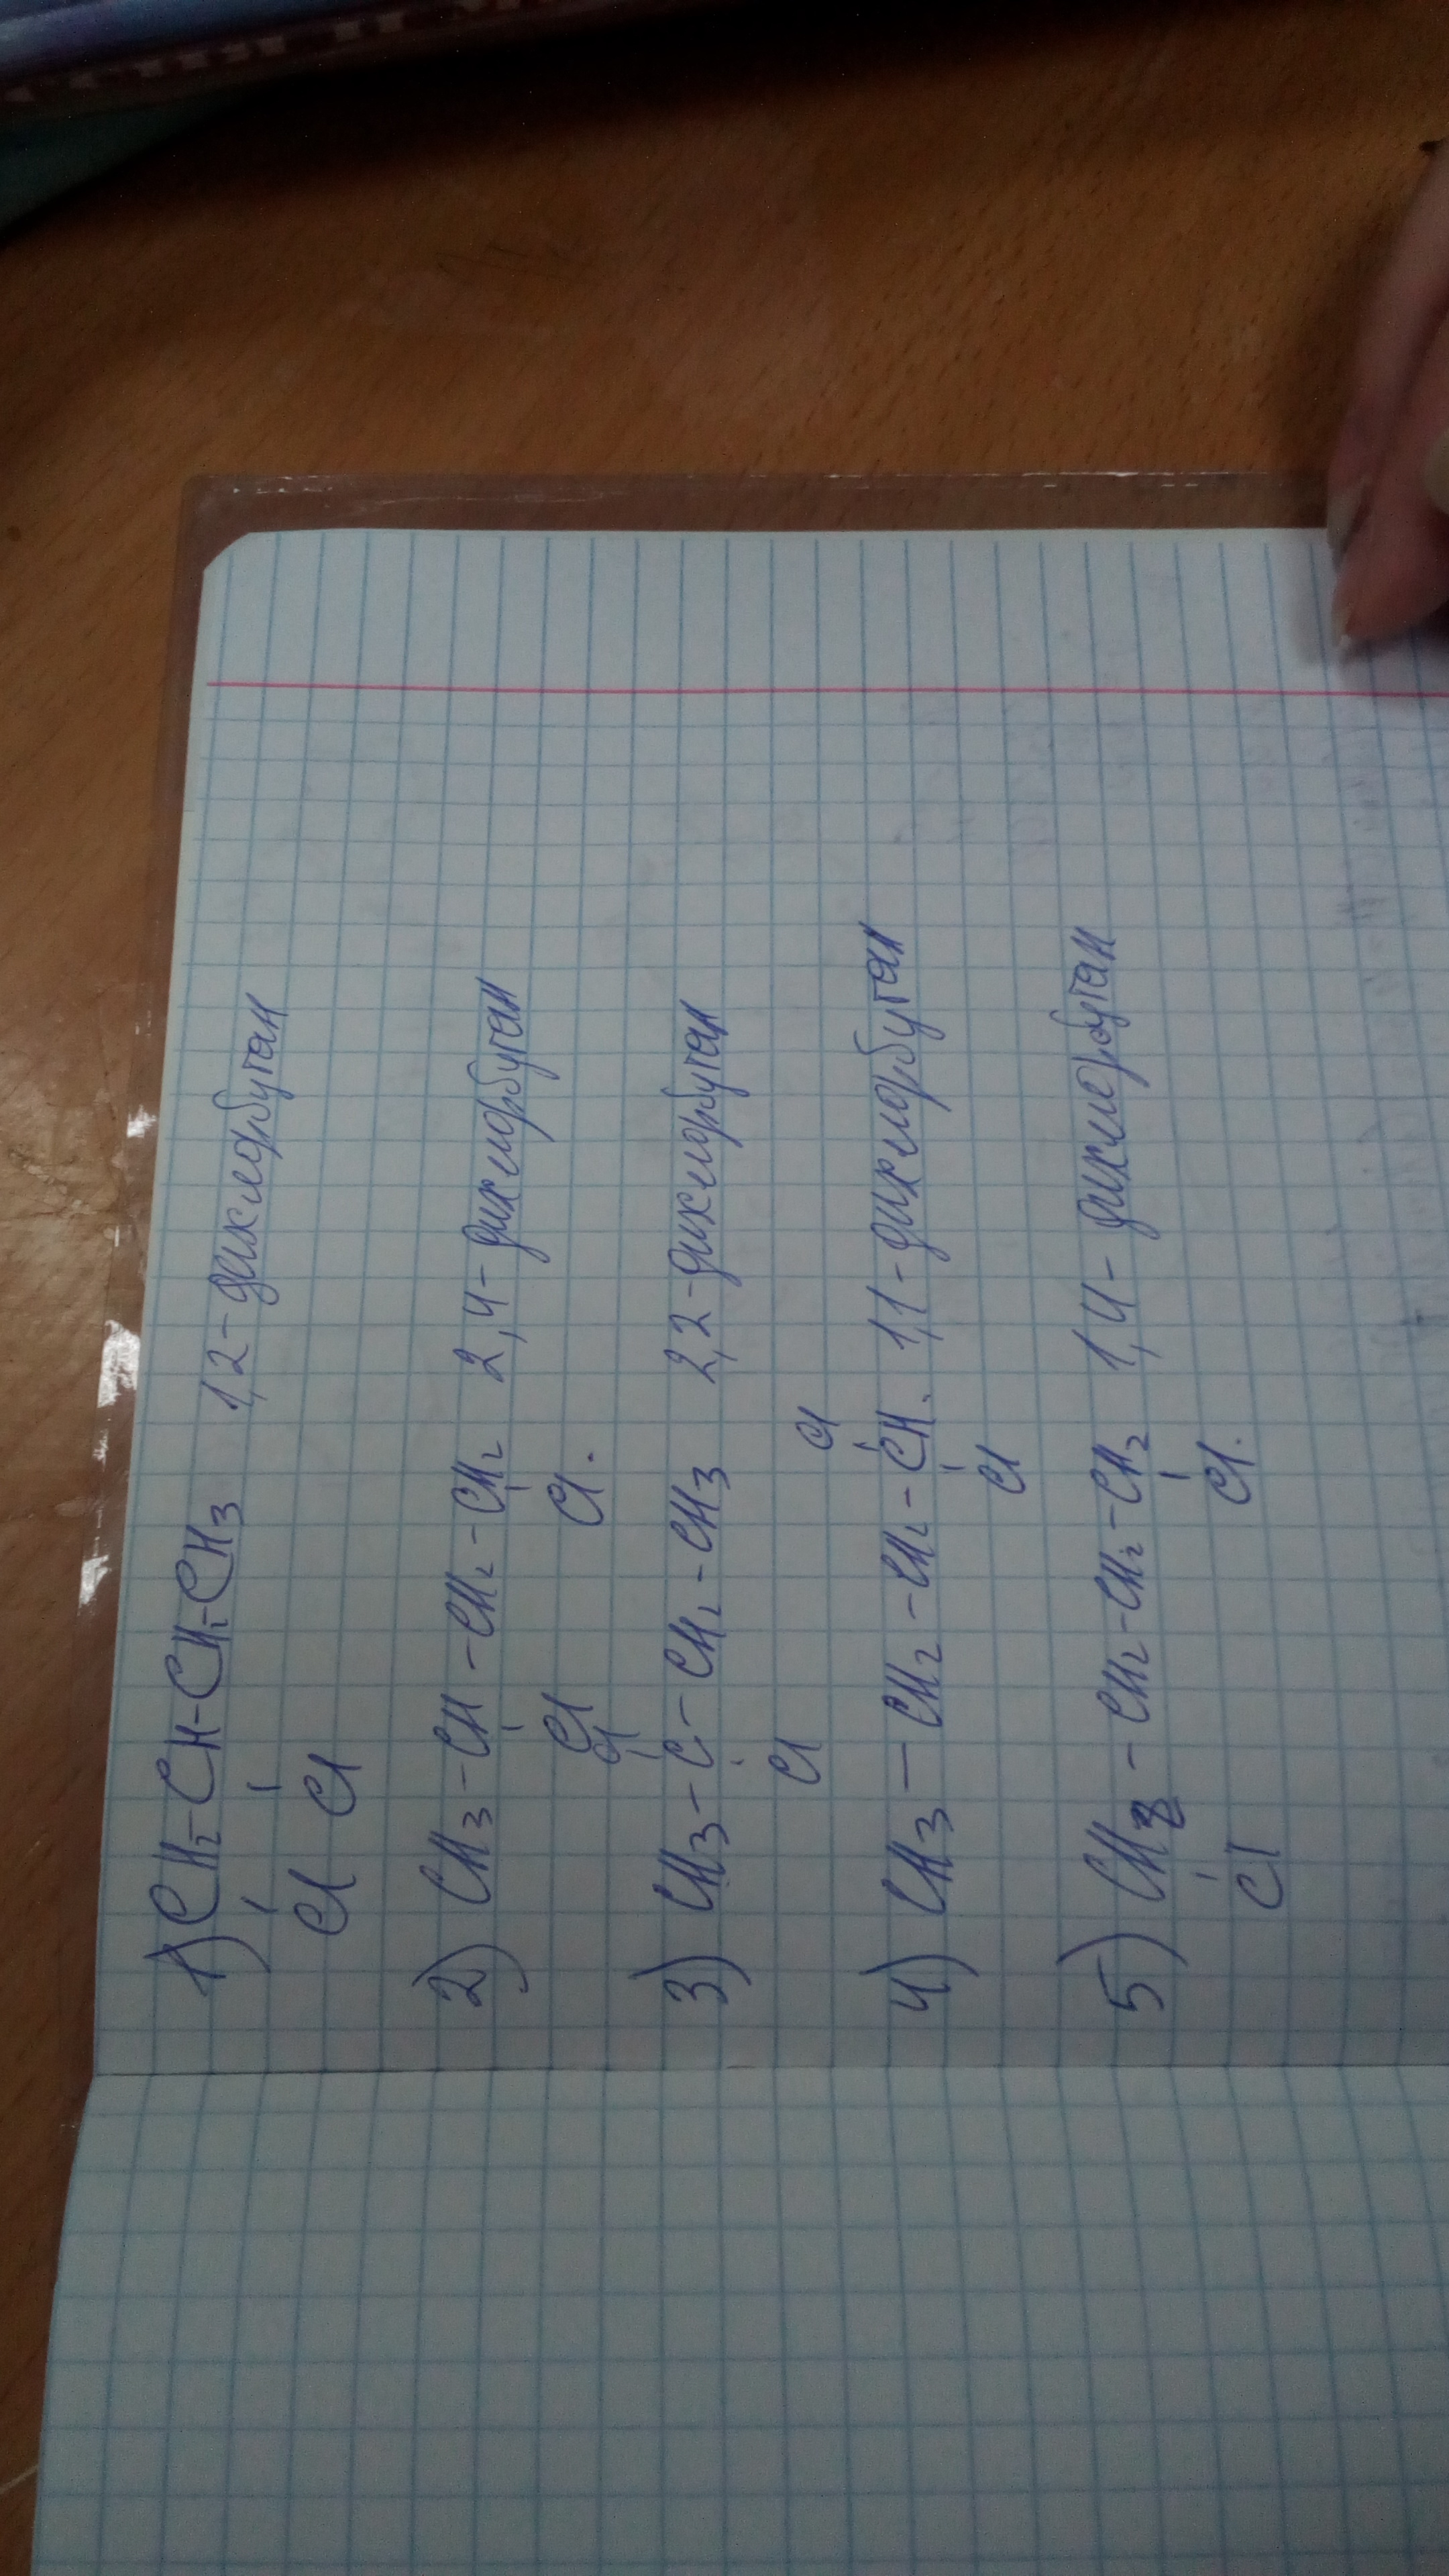 1) CH₂-CH-CH₂-CH₃ 1,2-дихлорбутан
Cl Cl
2) CH₃-CH-CH₂-CH₂ 2,4-дихлорбутан
Cl Cl.
Cl
3) CH₃-C-CH₂-CH₃ 2,2-дихлорбутан
Cl
Cl
4) CH₃-CH₂-CH₂-CH. 1,1-дихлорбутан
Cl
5) CH₂-CH₂-CH₂-CH₂ 1,4-дихлорбутан
Cl Cl.